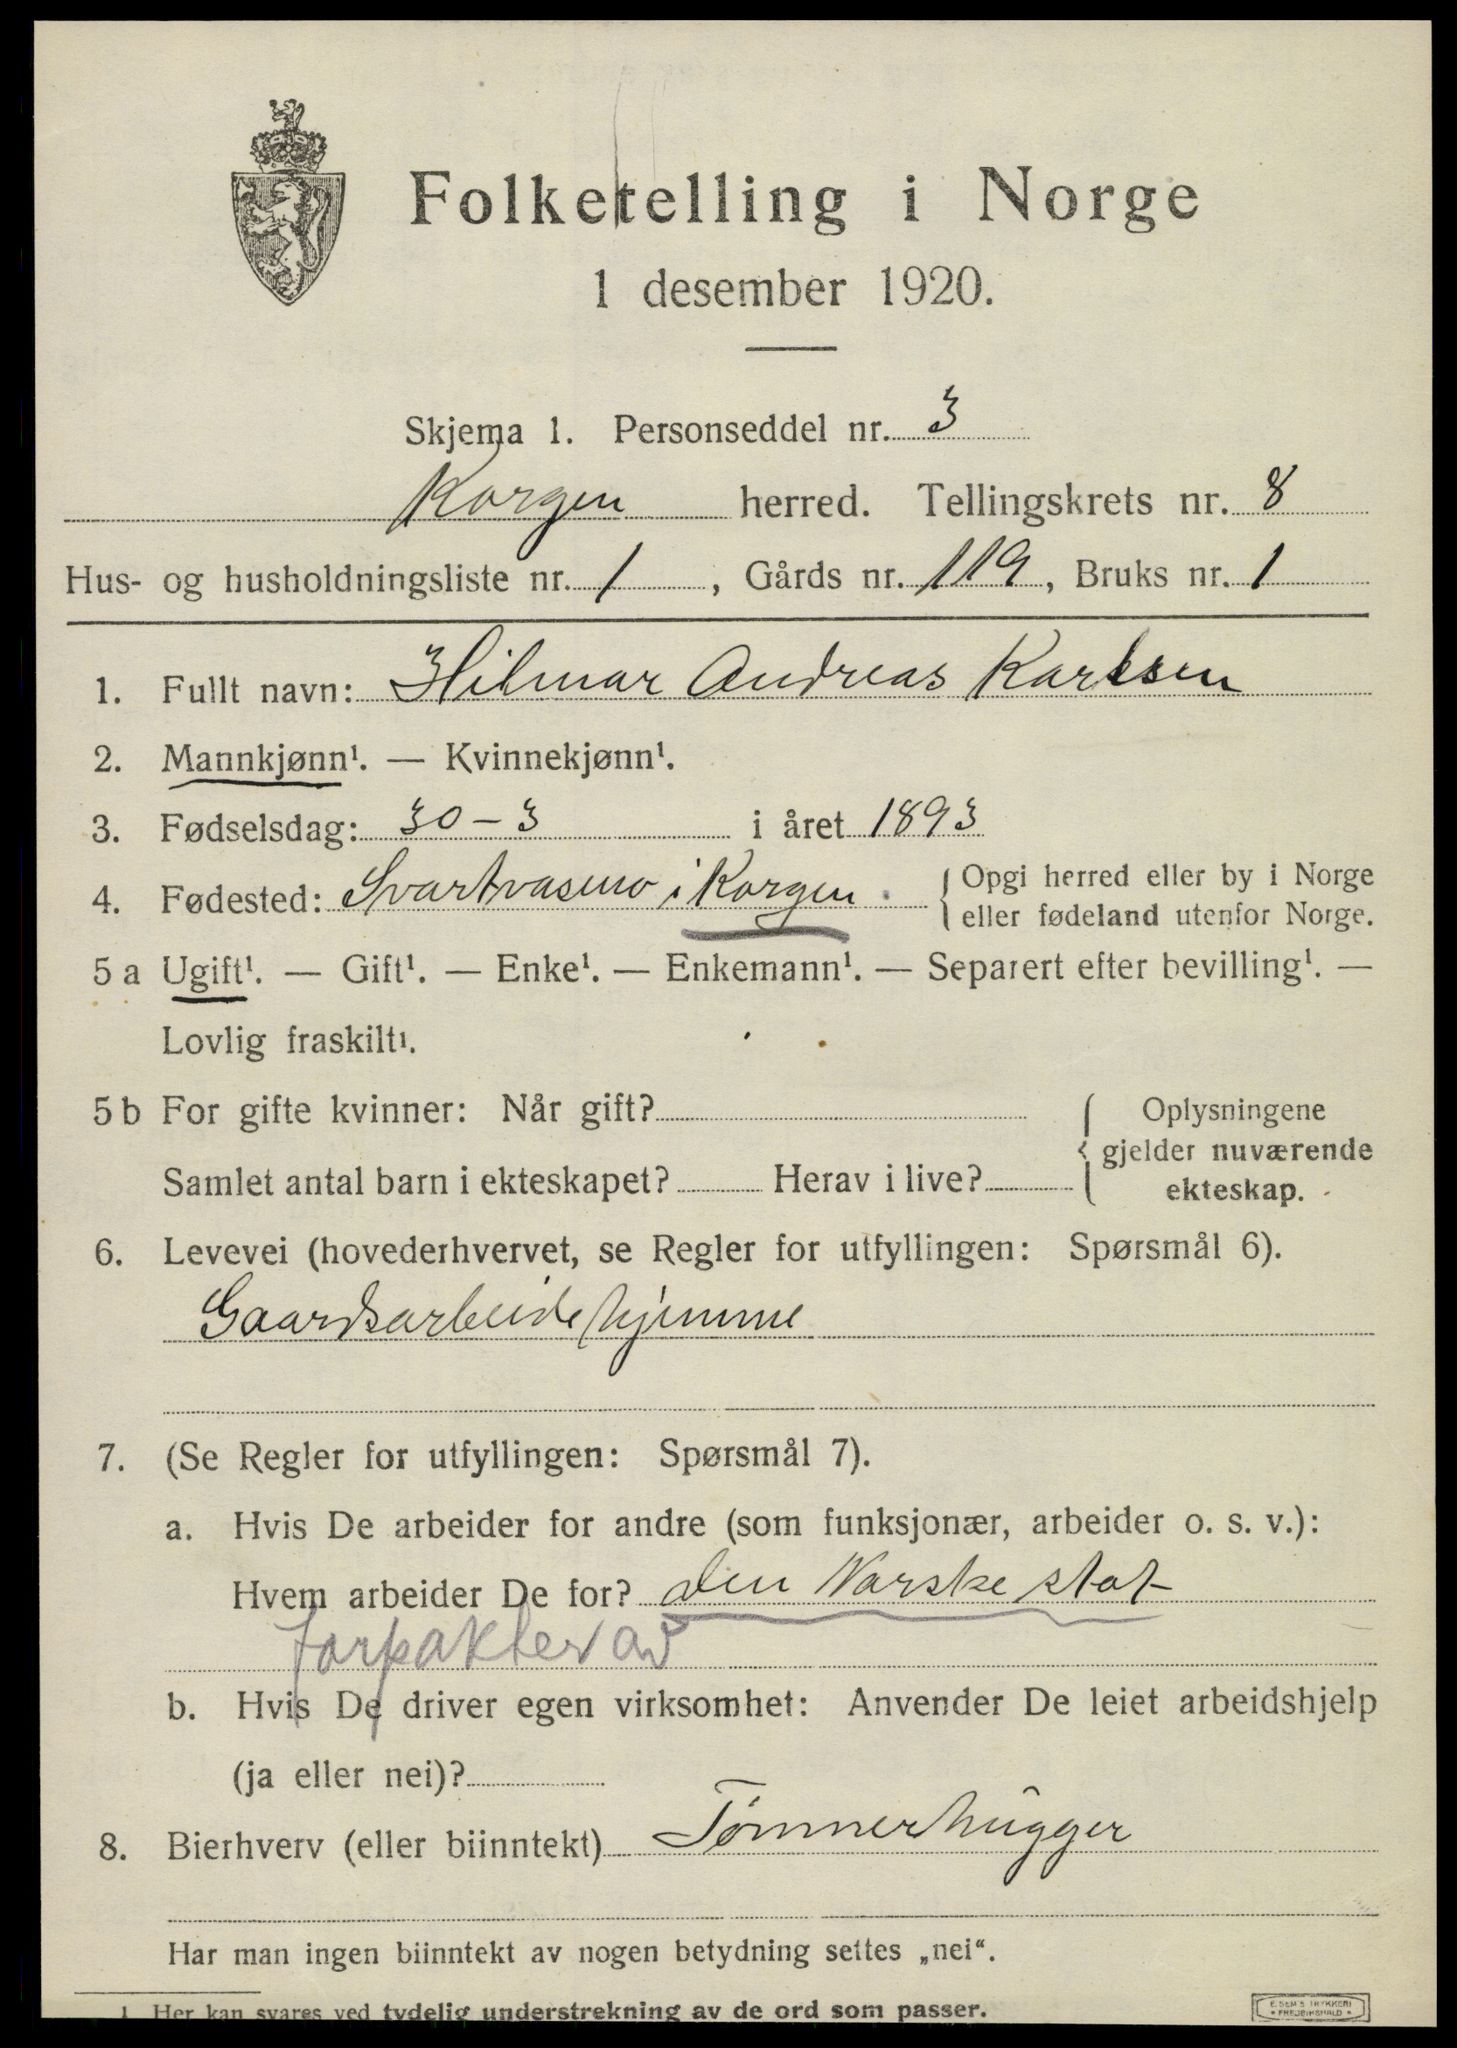 Folketelling i Norge
1 desember 1920.
Skjema 1. Personseddel nr. 3
Korgen herred. Tellingskrets nr. 8
Hus- og husholdningsliste nr. 1, Gårds nr. 119, Bruks nr. 1
1. Fullt navn: Hilmar Andreas Karlsen
2. Mannkjønn¹. — Kvinnekjønn¹.
3. Fødselsdag: 30-3 i året 1893
4. Fødested: i Korgen. { Opgi herred eller by i Norge
eller fødeland utenfor Norge.
5 a Ugift¹. — Gift¹. — Enke¹. — Enkemann¹. — Separert efter bevilling¹. —
Lovlig fraskilt¹.
5 b For gifte kvinner: Når gift? { Oplysningene
gjelder nuværende
Samlet antal barn i ekteskapet? Herav i live? ekteskap.
6. Levevei (hovederhvervet, se Regler for utfyllingen: Spørsmål 6).
Gaardsarbeide hjemme
7. (Se Regler for utfyllingen: Spørsmål 7).
a. Hvis De arbeider for andre (som funksjonær, arbeider o. s. v.):
Hvem arbeider De for? den Norske stat
forpakter av
b. Hvis De driver egen virksomhet: Anvender De leiet arbeidshjelp
(ja eller nei)?
8. Bierhverv (eller biinntekt) Tømmerhugger
Har man ingen biinntekt av nogen betydning settes „nei“.
1 Her kan svares ved tydelig understrekning av de ord som passer.
E. SEM'S TRYKKERI
FREDRIKSHALD